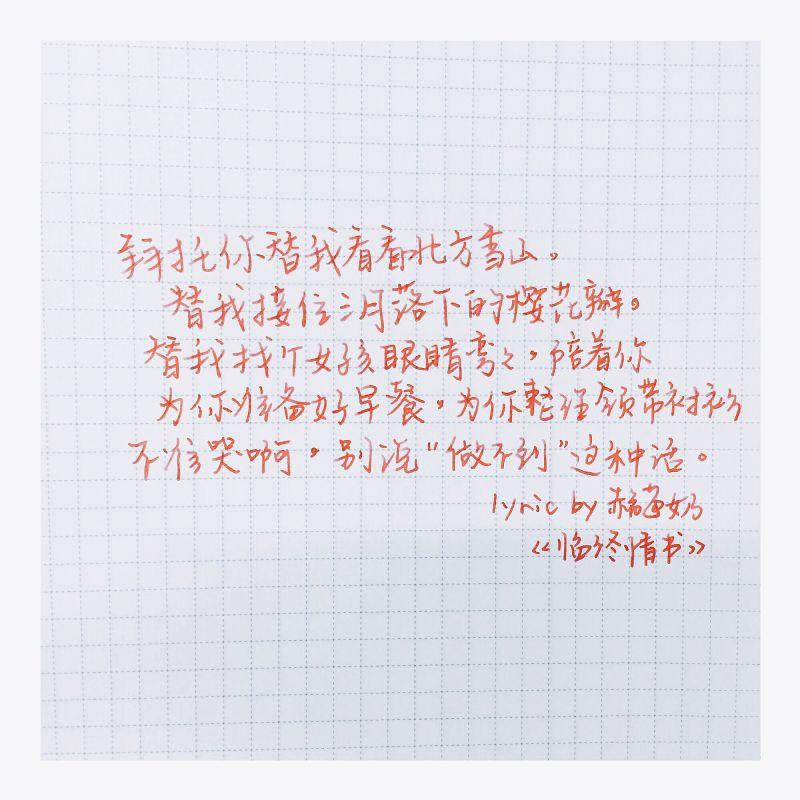 拜托你替我看看北方雪山。
替我接住三月落下的樱花瓣。
替我找个女孩眼睛弯々，陪着你
为你准备好早餐，为你整理领带衬衫
不准哭啊，别说“做不到”这种话。
lyric by 赫莲奶
《临终情书》